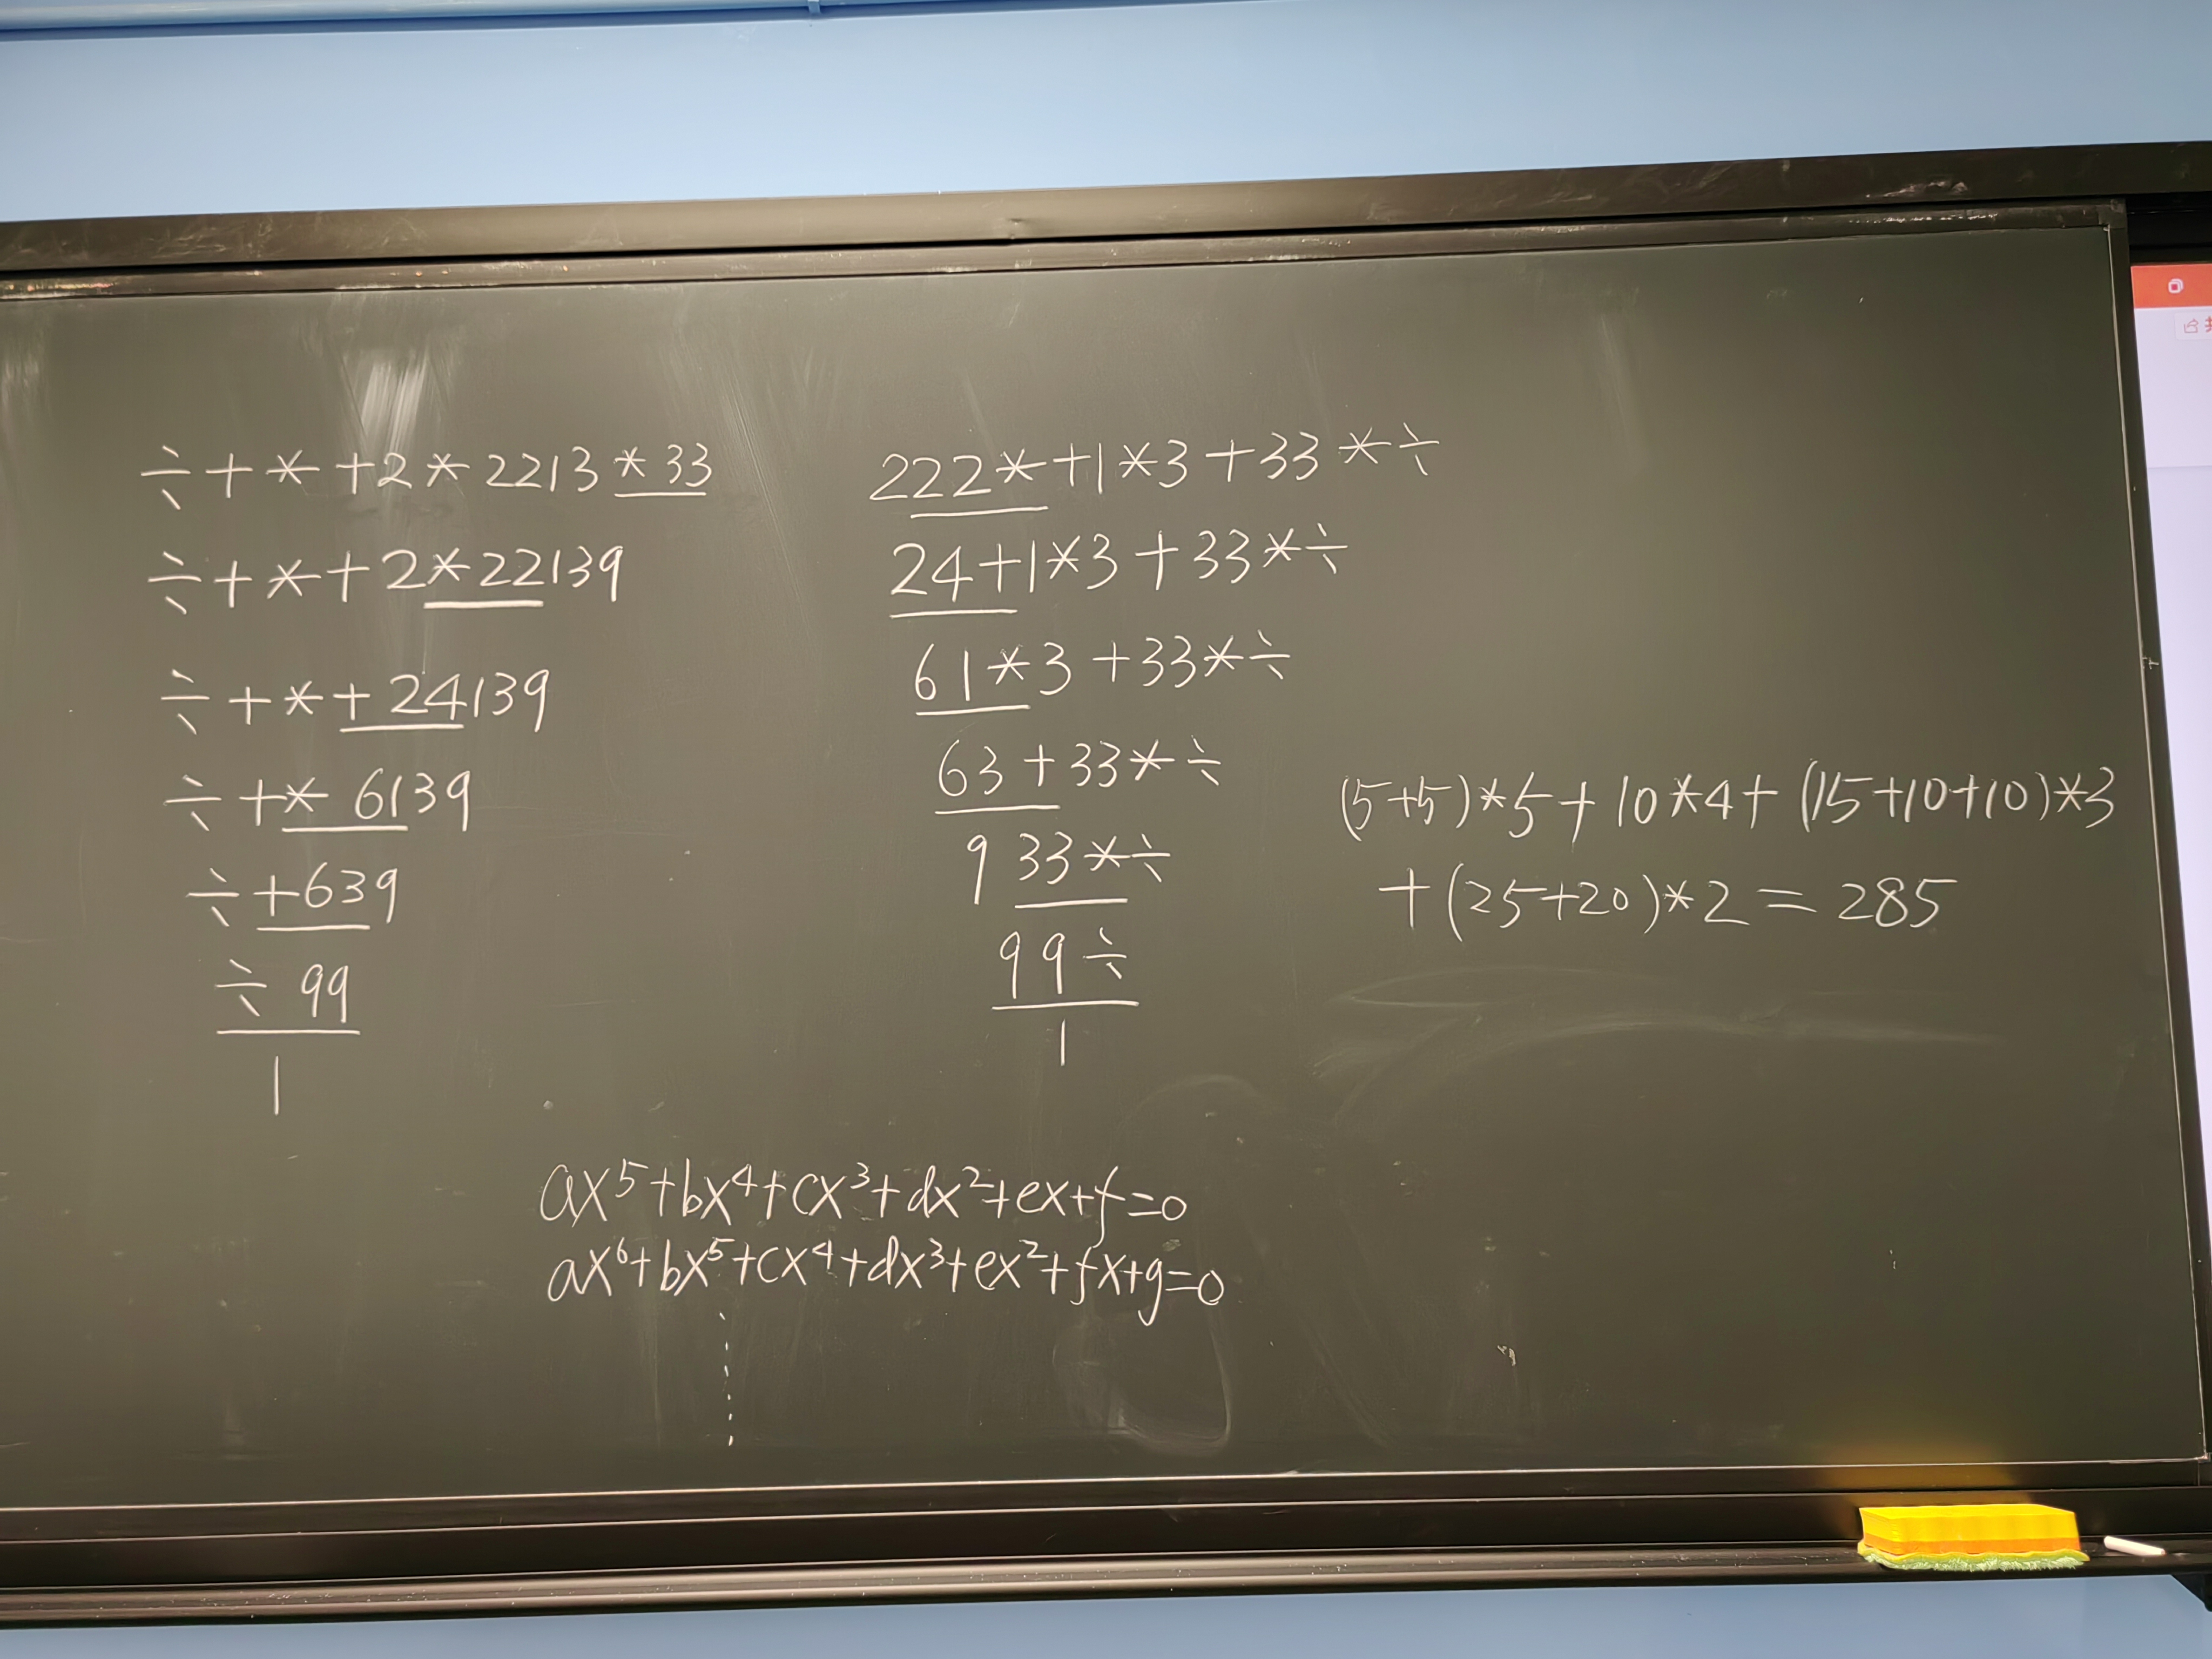 ÷+*+2*2213*33
÷+*+2*22139
÷+*+24139
÷+*6139
÷+639
÷99
1
222*+1*3+33*÷
24+1*3+33*÷
61*3+33*÷
63+33*÷
933*÷
99÷
1
(5+5)*5+10*4+(15+10+10)*3
+(25+20)*2=285
ax⁵+bx⁴+cx³+dx²+ex+f=0
ax⁶+bx⁵+cx⁴+dx³+ex²+fx+g=0